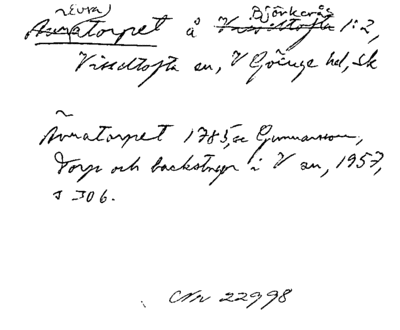 (Evra) Björkerås
Avratorpet å Visseltofta 1:2,
Visseltofta sn, V Göinge hd, Sk
Avratorpet 1785, se Gunnarsson,
Torp och backstugor i V sn, 1957,
s 306.
Nr 22998